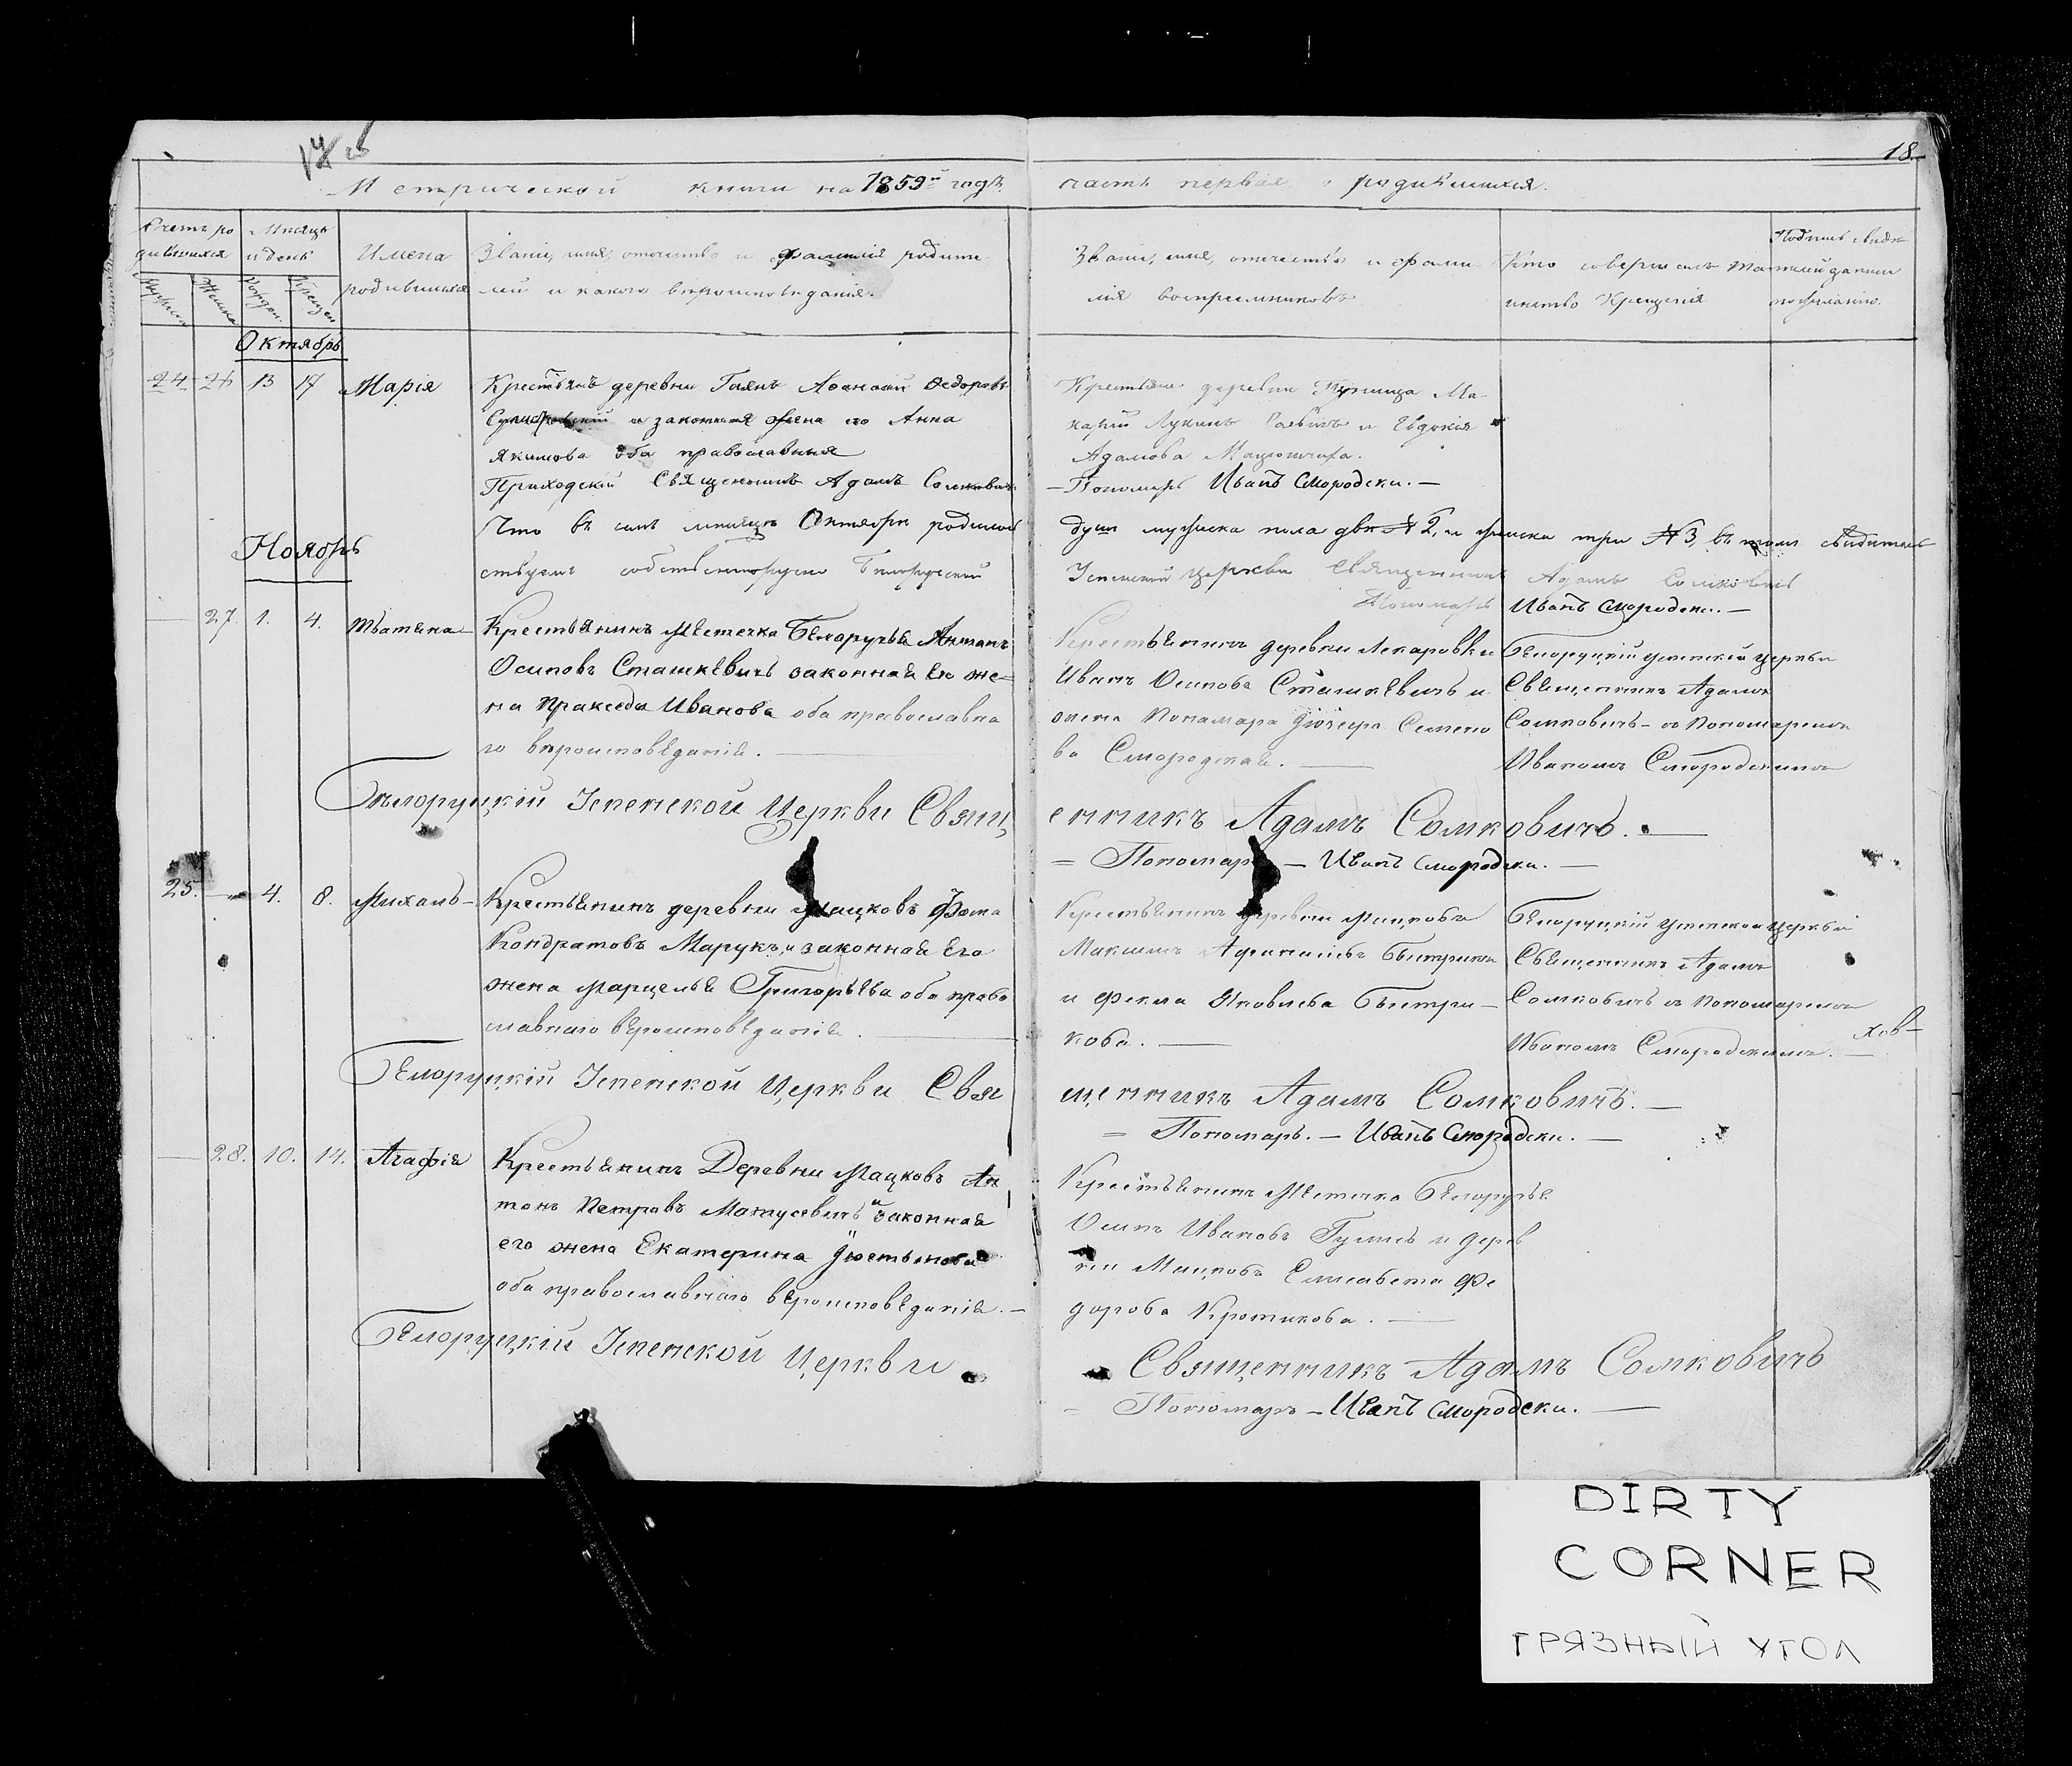 18.
Метрической книги на 1859й годъ
часть первая о родившихся.
Счетъ ро
дившихся
Мѣсяцъ
и день
Имена
родившихся
Званіе, имя, отчество и фамилія родите
лей и какого вѣроисповѣданія.
Званіе, имя, отчество и фами
лія воспріемниковъ
Кто совершалъ та
инство Крещенія
Октябрь
24 26 13 17 Марія
Крестьянъ деревни Гаянъ Афанасій Ѳедоровъ
и законная жена его Анна
Якимова оба православныя
Приходскій Священникъ Адамъ Сомковичъ
Крестьяне деревни Ма
карій Лукинъ и Евдокія
Адамова
Пономарь Иванъ Смородски. —
Что въ семъ мѣсяцѣ Октябрѣ родилось
душ мужеска пола двѣ № 2, и женска три № 3, въ томъ свидѣтель
ствуемъ
Успенской церкви Священникъ Адамъ Сомковичъ
Пономарь Иванъ Смородски. —
Ноябрь
27. 1. 4. Татьяна
Крестьянинъ Мѣстечка Бѣлоручья Антонъ
Осиповъ Сташкѣвичъ законная Его же=
на Праксѣда Иванова оба православна
го вѣроисповѣданія.
Крестьянинъ деревни Лекаровки
Иванъ Осиповъ Сташкѣвичъ и
жена Понамара Семено
ва Смородская.
Бѣлоруцкій успенской церкви
Священникъ Адамъ
Сомковичъ съ Пономаремъ
Иваномъ Смородскимъ
Бѣлоруцкій Успенской Церкви Свящ
енникъ Адамъ Сомковичъ. —
= Пономарь — Иванъ Смородски. —
25. 4. 8. Михаилъ
Крестьянинъ деревни Мацковъ Фома
Кондратовъ Марукъ, и законная Его
жена Марцелья Григорьѣва оба право
славнаго вѣроисповѣданія.
Крестьянинъ деревни Мацковъ
Максимъ
и Фекла Яковлева Быстри—
кова. —
Бѣлоруцкій успенской церкви
Священникъ Адамъ
Сомковичъ съ Пономаремъ
Иваномъ Смородскимъ. —
Бѣлоруцкій Успенской Церкви Свя
щенникъ Адамъ Сомковичъ. —
= Пономарь. — Иванъ Смородски. —
28. 10. 14. Агафія
Крестьянинъ Деревни Мацковъ Ан
тонъ Петровъ Матусевичъ и законная
его жена Екатерина Юстынова
оба православнаго вѣроисповѣданія. —
Крестьянинъ Мѣстечка Бѣлоручья
Осипъ Ивановъ и дерев
ни Мацковъ Елисавета Фе
дорова Кротикова. —
Бѣлоруцкій Успенской Церкви
Священникъ Адамъ Сомковичъ
= Пономарь — Иванъ Смородски. —
DIRTY
CORNER
ГРЯЗНЫЙ УГОЛ